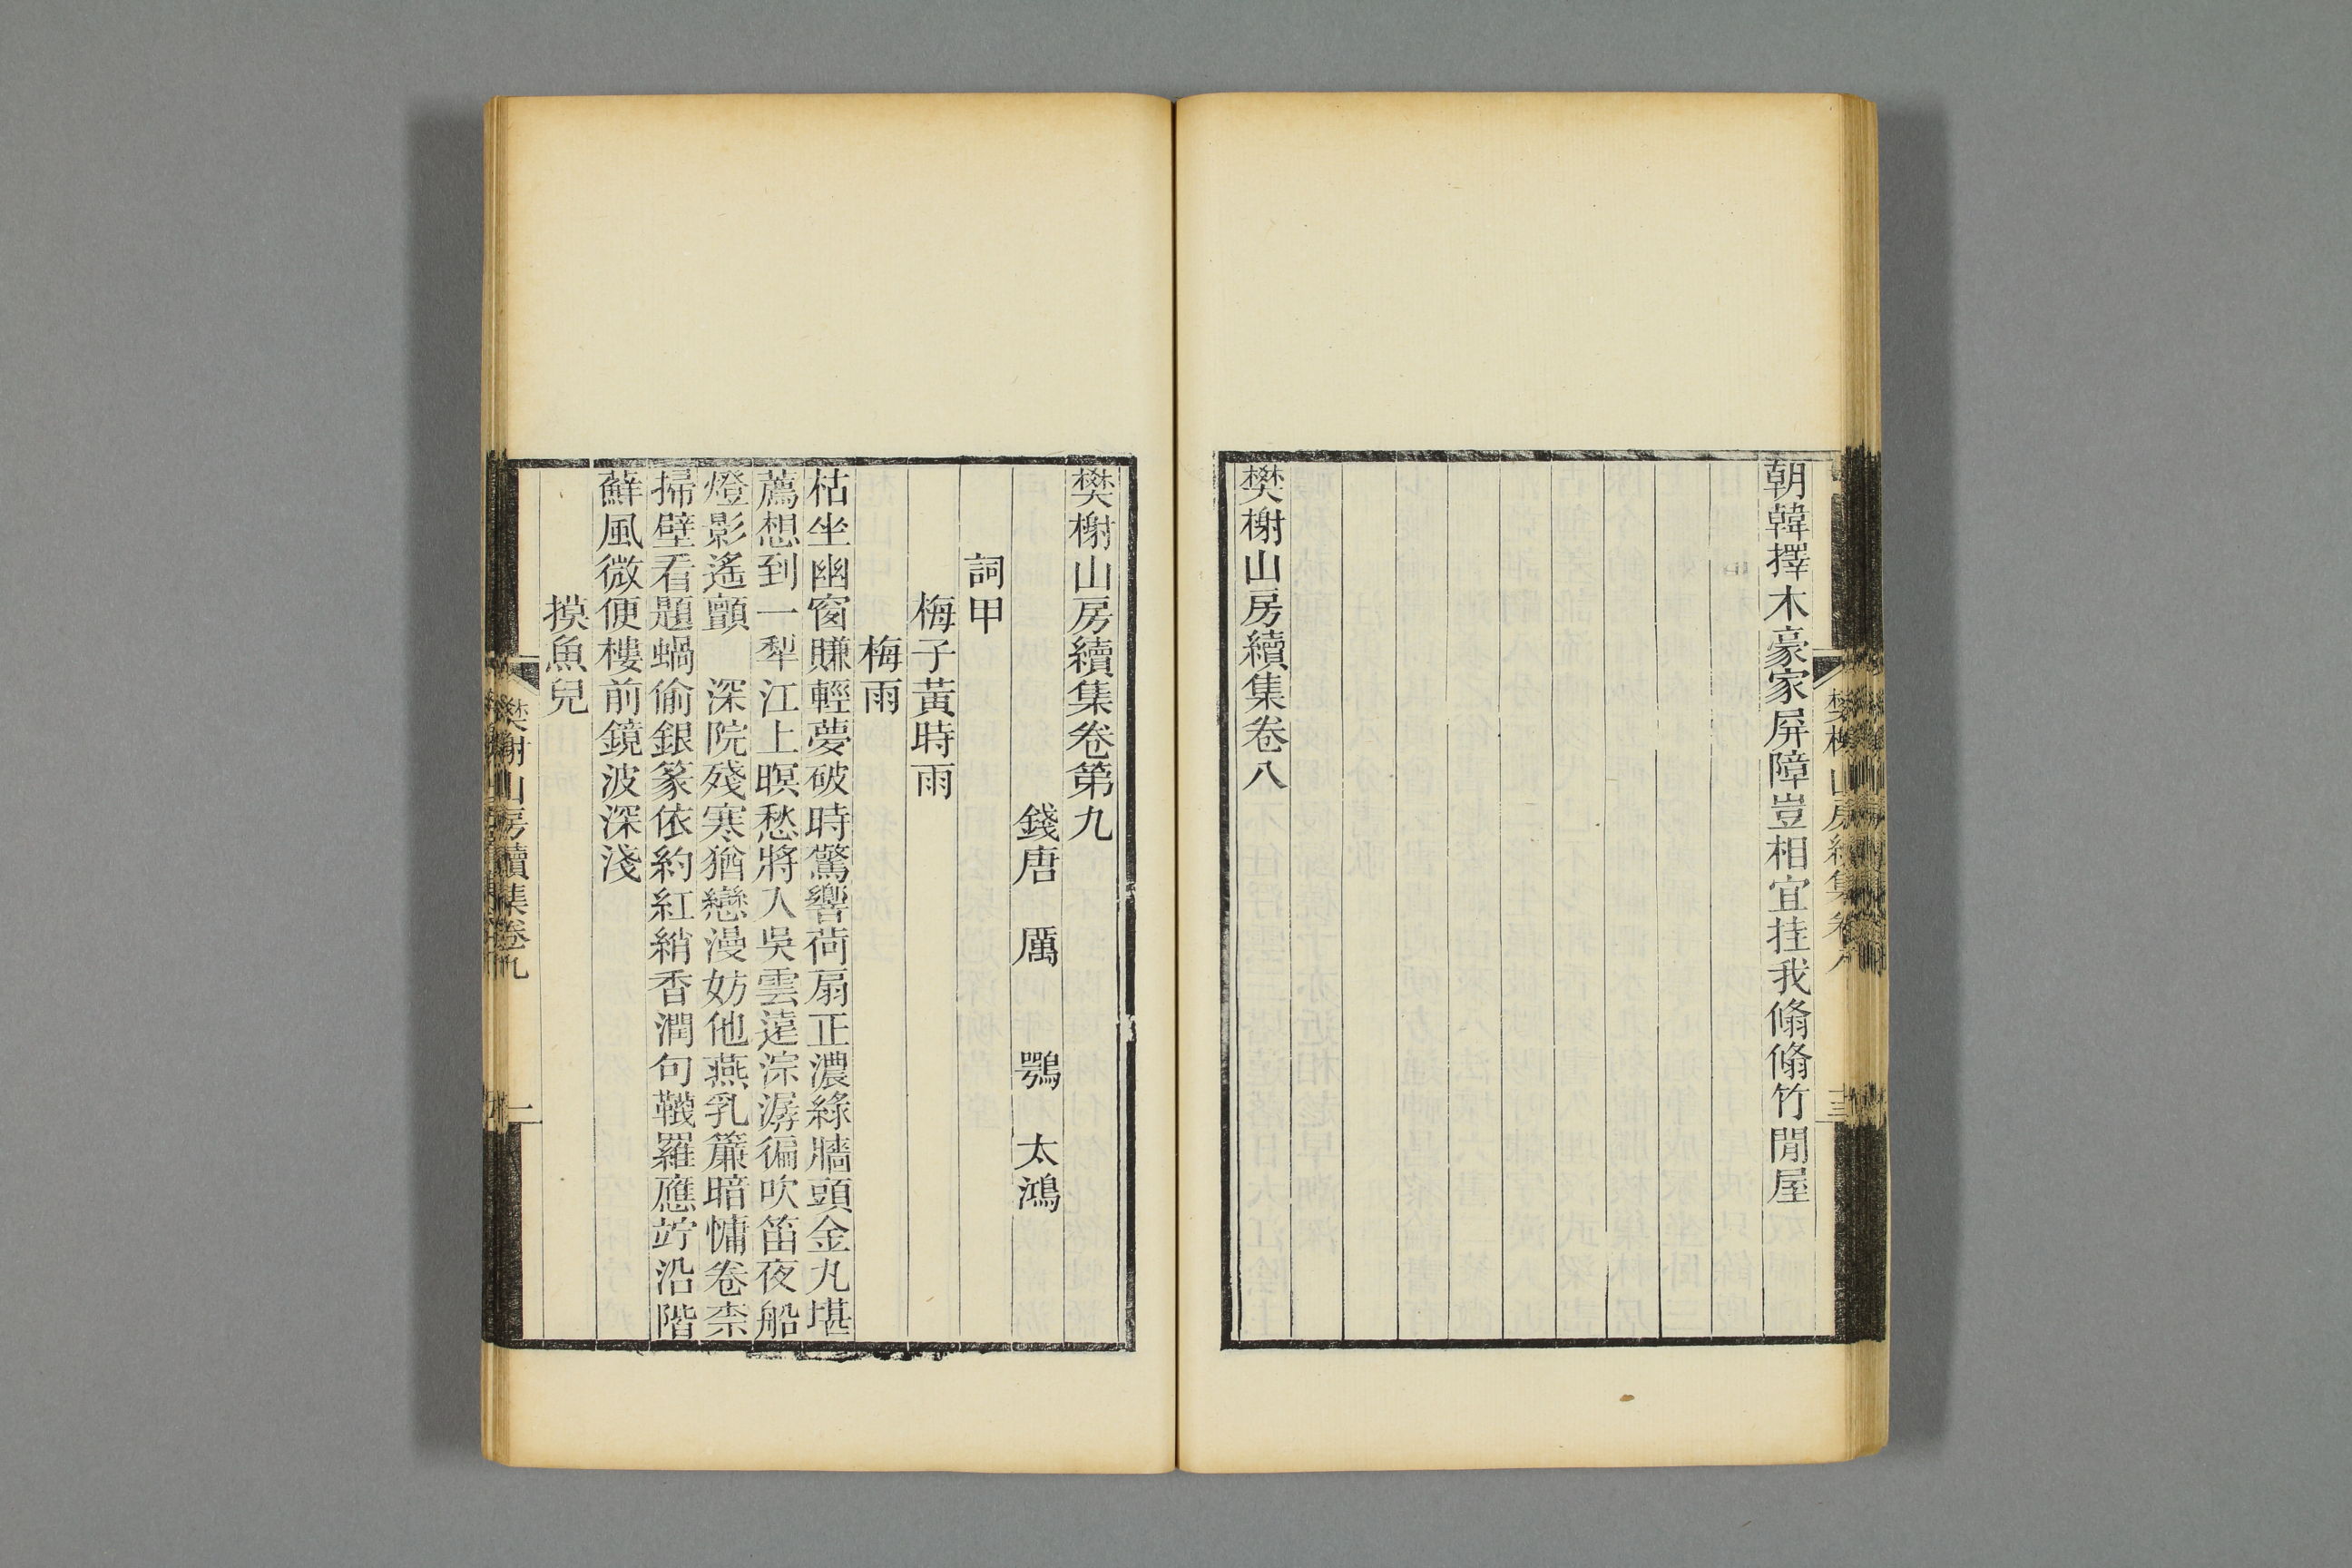 朝韓擇木豪家屏障豈相宜挂我翛翛竹閒屋
樊榭山房續集卷八
樊榭山房續集卷第九
錢唐 厲 鶚 太鴻
詞甲
梅子黃時雨
梅雨
枯坐幽窗賺輕夢破時驚響荷扇正濃綠牆頭金丸堪
薦想到一犁江上暝愁將入吳雲遠淙潺徧吹笛夜船
燈影遙顫 深院殘寒猶戀漫妨他燕乳簾暗慵卷柰
掃壁看題蝸偷銀篆依約紅綃香潤句韈羅應竚沿階
蘚風微便樓前鏡波深淺
摸魚兒
樊榭山房續集卷九
一